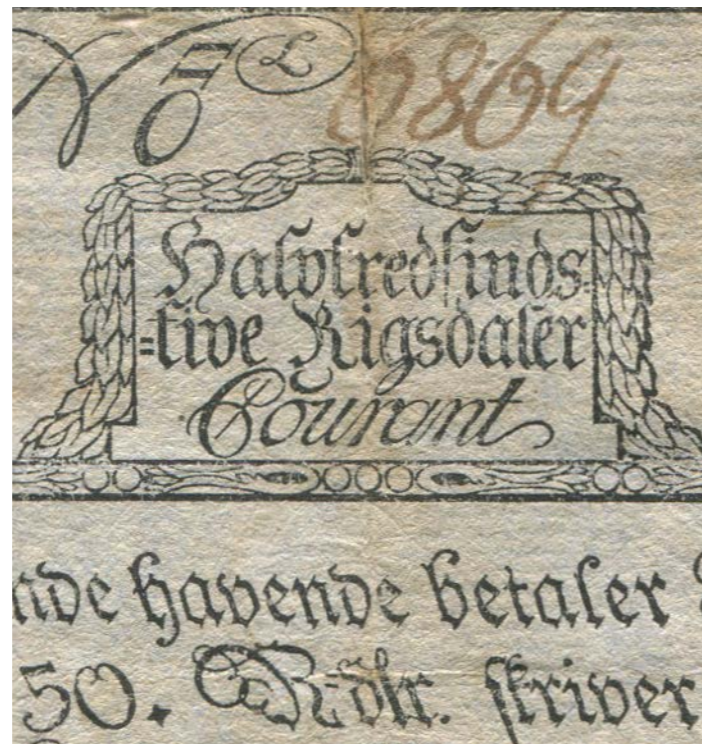 No L 6869
Halvtredsinds-
=tive Rigsdaler
Courant
nde havende betaler
50. Rdlr. skriver